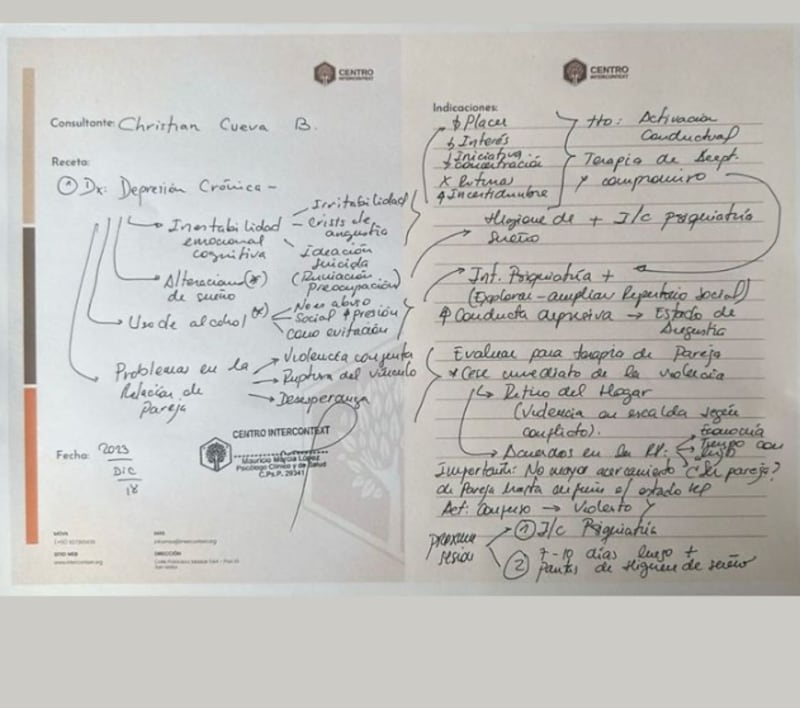 CENTRO
INTERCONTEXT
Consultante: Christian Cueva B.
Receta:
① Dx: Depresión Crónica -
→ Inestabilidad emocional cognitiva
- Irritabilidad
- Crisis de angustia
Ideación suicida
(Rumiación Preocupación)
→ Alteraciones (*) de sueño
→ Uso de alcohol (*)
No es abuso
Social ↑ presión
como evitación
Problemas en la Relación de Pareja
→ Violencia conjunta
→ Ruptura del vínculo
→ Desesperanza
Fecha: 2023
DIC
18
CENTRO INTERCONTEXT
Mauricio Murcia López
Psicólogo Clínico y de Salud
C.Ps.P. 29341
MÓVIL
SITIO WEB
www.intercontext.org
DIRECCIÓN
CENTRO
INTERCONTEXT
Indicaciones:
↓ Placer
↓ Interés
↓ Iniciativa
↓ concentración
X Rutina
↑ Incertidumbre
tto: Activación Conductual
Terapia de Acept. y compromiso
Higiene de sueño + I/c psiquiatría
Int. Psiquiatría +
(Explorar - ampliar Repertorio Social)
↑ Conducta depresiva → Estado de Angustia
Evaluar para terapia de Pareja
* Cese inmediato de la violencia
↳ Retiro del Hogar
(Violencia en escalda según conflicto).
→ Acuerdos en la RP:
Economía
Tiempo con
Important: No mayor acercamiento c/su pareja?
de Pareja hasta definir el estado
Act: Confuso → Violento
proxima sesión
① I/c Psiquiatría
② 7-10 días luego +
pautas de Higiene de sueño